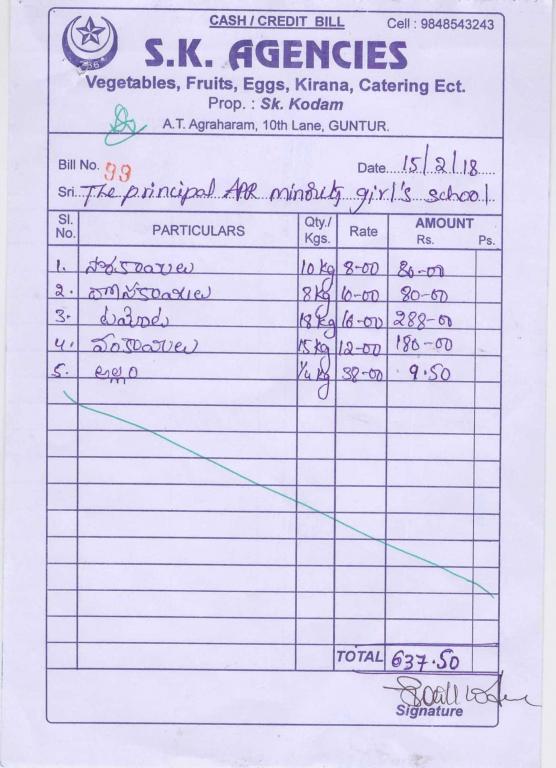 CASH / CREDIT BILL Cell : 9848543243
786
S.K. AGENCIES
Vegetables, Fruits, Eggs, Kirana, Catering Ect.
Prop. : Sk. Kodam
A.T. Agraharam, 10th Lane, GUNTUR.
Bill No. 99 Date 15/2/18
Sri. The principal APR minority girl's school
Sl. No. PARTICULARS Qty./ Kgs. Rate AMOUNT Rs. Ps.
1. 10 kg 8-00 80-00
2. 8 kg 10-00 80-00
3. టమోటాలు 18 kg 16-00 288-00
4. వంకాయలు 15 kg 12-00 180-00
5. అల్లం 1/4 kg 38-00 9.50
TOTAL 637.50
Signature